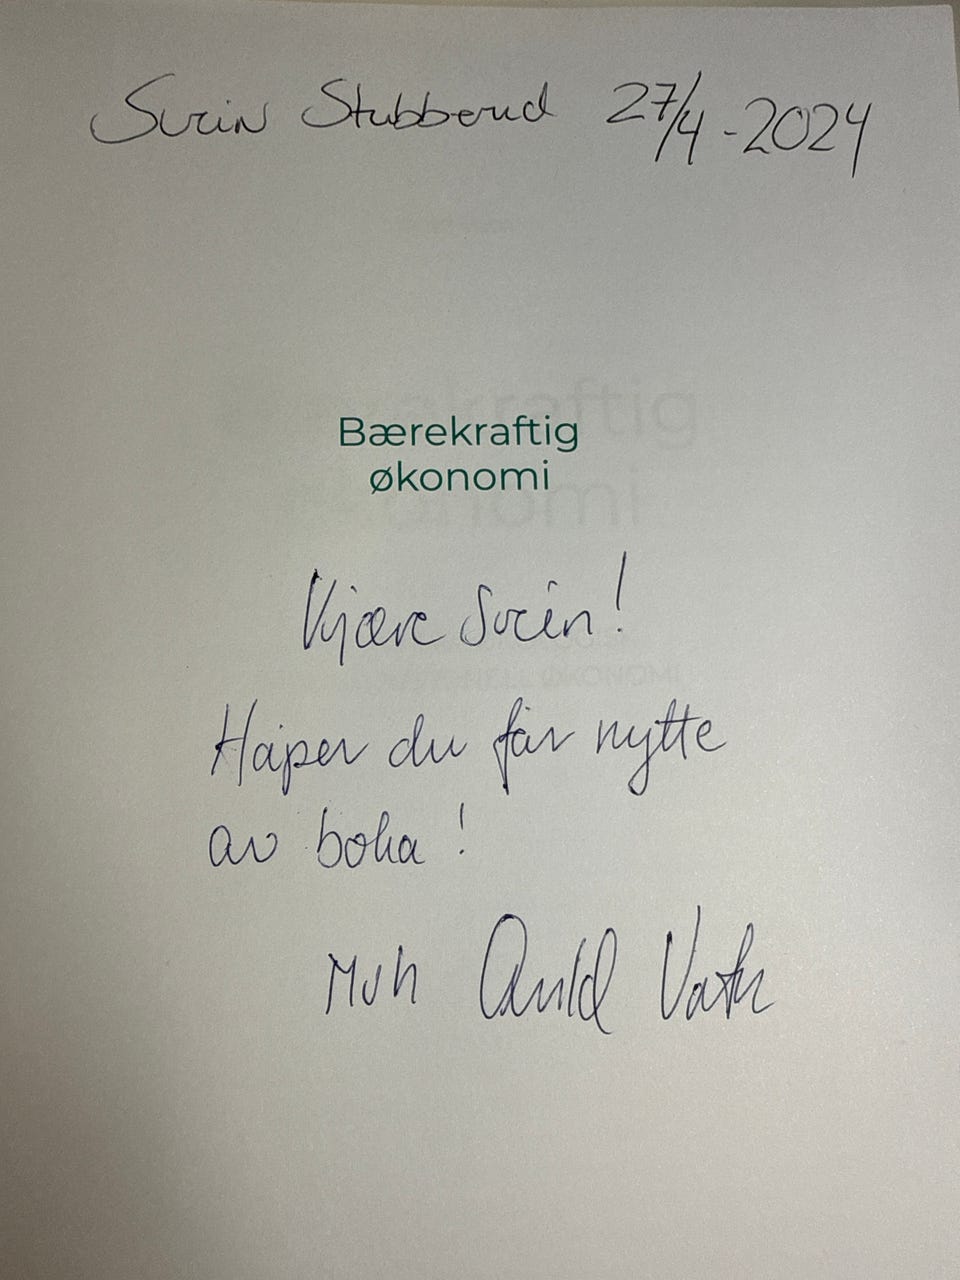 Svein Stubberud 27/4-2024
Bærekraftig
økonomi
Kjære Svein!
Håper du får nytte
av boka!
Mvh